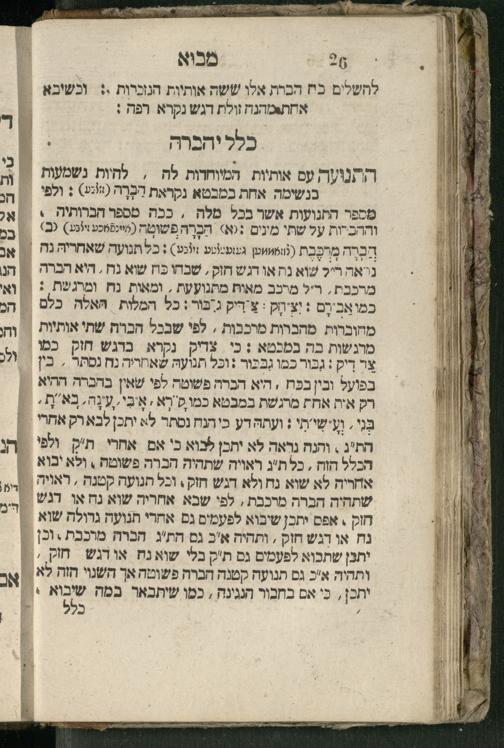 26
מבוא
להשלים כח הברת אלו ששה אותיות הנזכרות : וכשיבא
אחת מהנה זולת דגש נקרא רפה :
כללי הברה
התנועה עם אותיות המיוחדות לה , להיות נשמעות
בנשימה אחת במבטא נקראת הֲבָרָה : ולפי
מספר התנועות אשר בכל מלה , ככה מספר הברותיה .
וההברות על שתי מינים : (א) הֲבָרָה פְּשׁוּטָה (ב)
הֲבָרָה מֻרְכֶּבֶת : כל תנועה שאחריה נח
נראה ר״ל שוא נח או דגש חזק , שכחו כח שוא נח , היא הברה
מרכבת , ר״ל מרכב מאות מתנועעת , ומאות נח ומרגשת :
כמו אַבְרָם : יִצְחָק : צַדִּיק גִּבּוֹר : כל המלות האלה כלם
מחוברות מהברות מרכבות , לפי שבכל הברה שתי אותיות
מרגשות בה במבטא : כי צדיק נקרא בדגש חזק כמו
צַדְ דִיק : גבור כמו גִבְבּוּר : וכל תנועה שאחריה נח נסתר , בין
בפועל ובין בכח , היא הברה פשוטה לפי שאין בהברה ההיא
רק אות אחת מרגשת במבטא כמו קָרָא , אָבִי , עֵינָהּ , בָּאתָ ,
בְּנִי , וְעָשִׂיתִי : ועתה דע כי הנח נסתר לא יתכן לבא רק אחרי
הת״ג , והנח נראה לא יתכן לבוא כי אם אחרי ת״ק ולפי
הכלל הזה , כל ת״ג ראויה שתהיה הברה פשוטה , ולא יבוא
אחריה לא שוא נח ולא דגש חזק , וכל תנועה קטנה , ראויה
שתהיה הברה מרכבת , לפי שבא אחריה שוא נח או דגש
חזק , אפס יתכן שיבוא לפעמים גם אחרי תנועה גדולה שוא
נח או דגש חזק , ותהיה א״כ גם הת״ג הברה מרכבת , וכן
יתכן שתבוא לפעמים גם ת״ק בלי שוא נח או דגש חזק ,
ותהיה א״כ גם תנועה קטנה הברה פשוטה אך השנוי הזה לא
יתכן , כי אם בחבור הנגינה , כמו שיתבאר במה שיבוא .
כלל